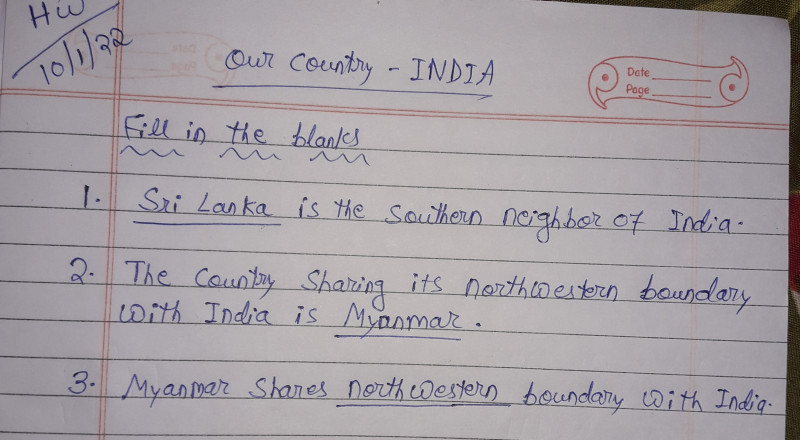 HW
10/1/22
Our Country - INDIA
Date
Page
Fill in the blanks
1. Sri Lanka is the Southern neighbor of India.
2. The Country Sharing its northwestern boundary
with India is Myanmar.
3. Myanmar Shares northwestern boundary with India.